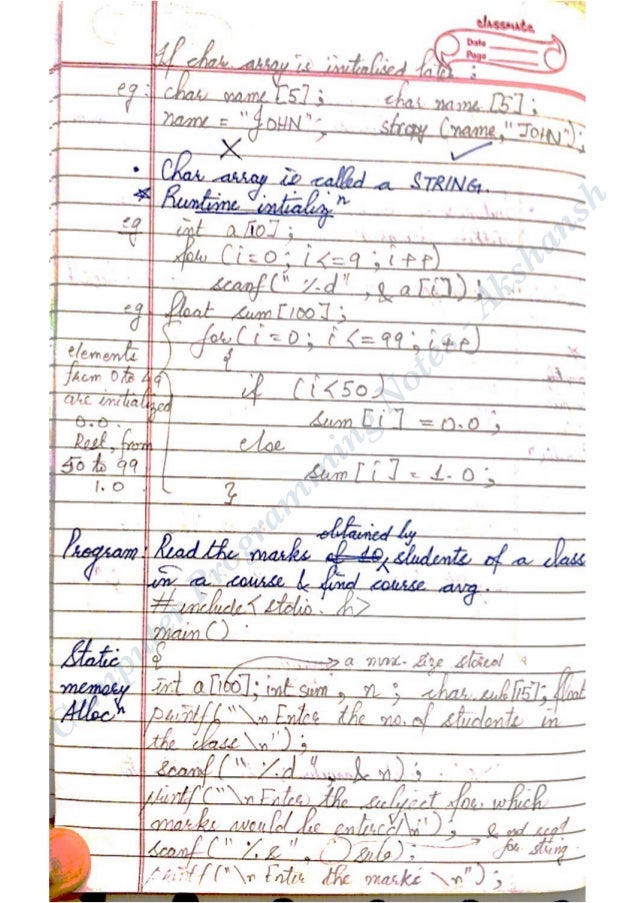 classmate
Date
Page
If char array is initialised later :
eg: char name [5] ; char name [5] ;
name = "JOHN" ; strcpy (name, "JOHN") ;
• Char array is called a STRING.
* Runtime intializⁿ
eg int a[10] ;
for (i=0 ; i<=9 ; i++)
scanf(" %d" , & a[i]) ;
eg float sum [100] ;
for(i=0 ; i<=99 ; i++)
{
if (i<50)
sum [i] = 0.0 ;
else
sum [i] = 1.0 ;
}
elements
from 0 to 49
are initialized
0.0.
Rest, from
50 to 99
1.0
obtained by
Program: Read the marks of 10 students of a class
in a course & find course avg.
#include< stdio. h>
main()
Static
memory
Allocⁿ
{ → a max. size stored
int a[100] ; int sum , n ; char sub[15] ; float
printf("\n Enter the no. of students in
the class \n") ;
scanf(" %d " , & n) ;
printf("\n Enter the subject for which
marks would be entered \n") ;
& not reqd
for string
scanf(" %s " , sub) ;
printf("\n Enter the marks \n") ;
Computer Programming Notes - Akshansh